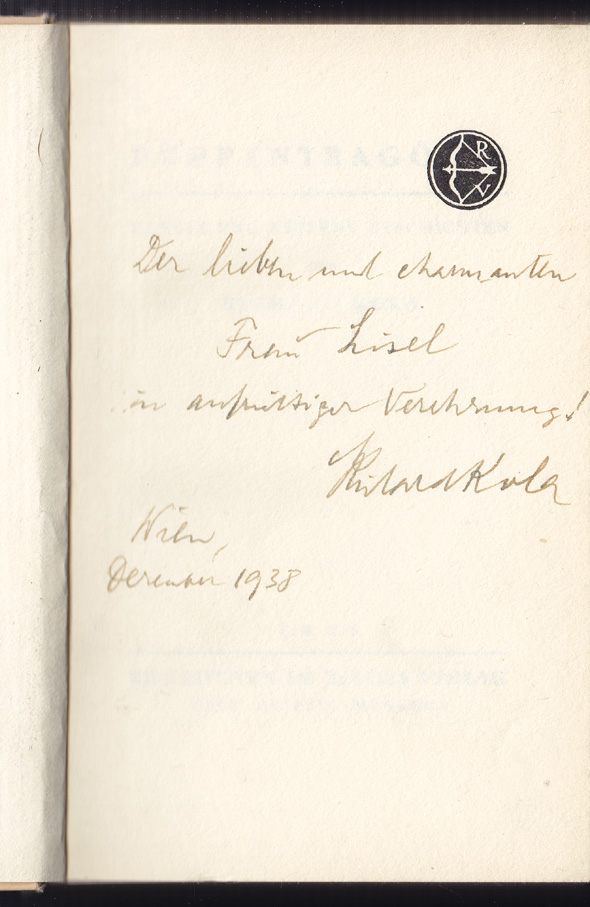 R
V
Der lieben und charmanten
Frau Lisel
in aufrichtiger Verehrung!
Richard Kola
Wien,
Dezember 1938